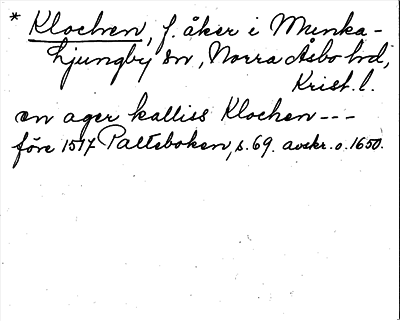 * Klochen, f. åker i Munka-
Ljungby sn, Norra Åsbo hd,
Krist. l.
en ager kalliss Klochen ---
före 1517 Palteboken, s. 69. avskr. o. 1650.